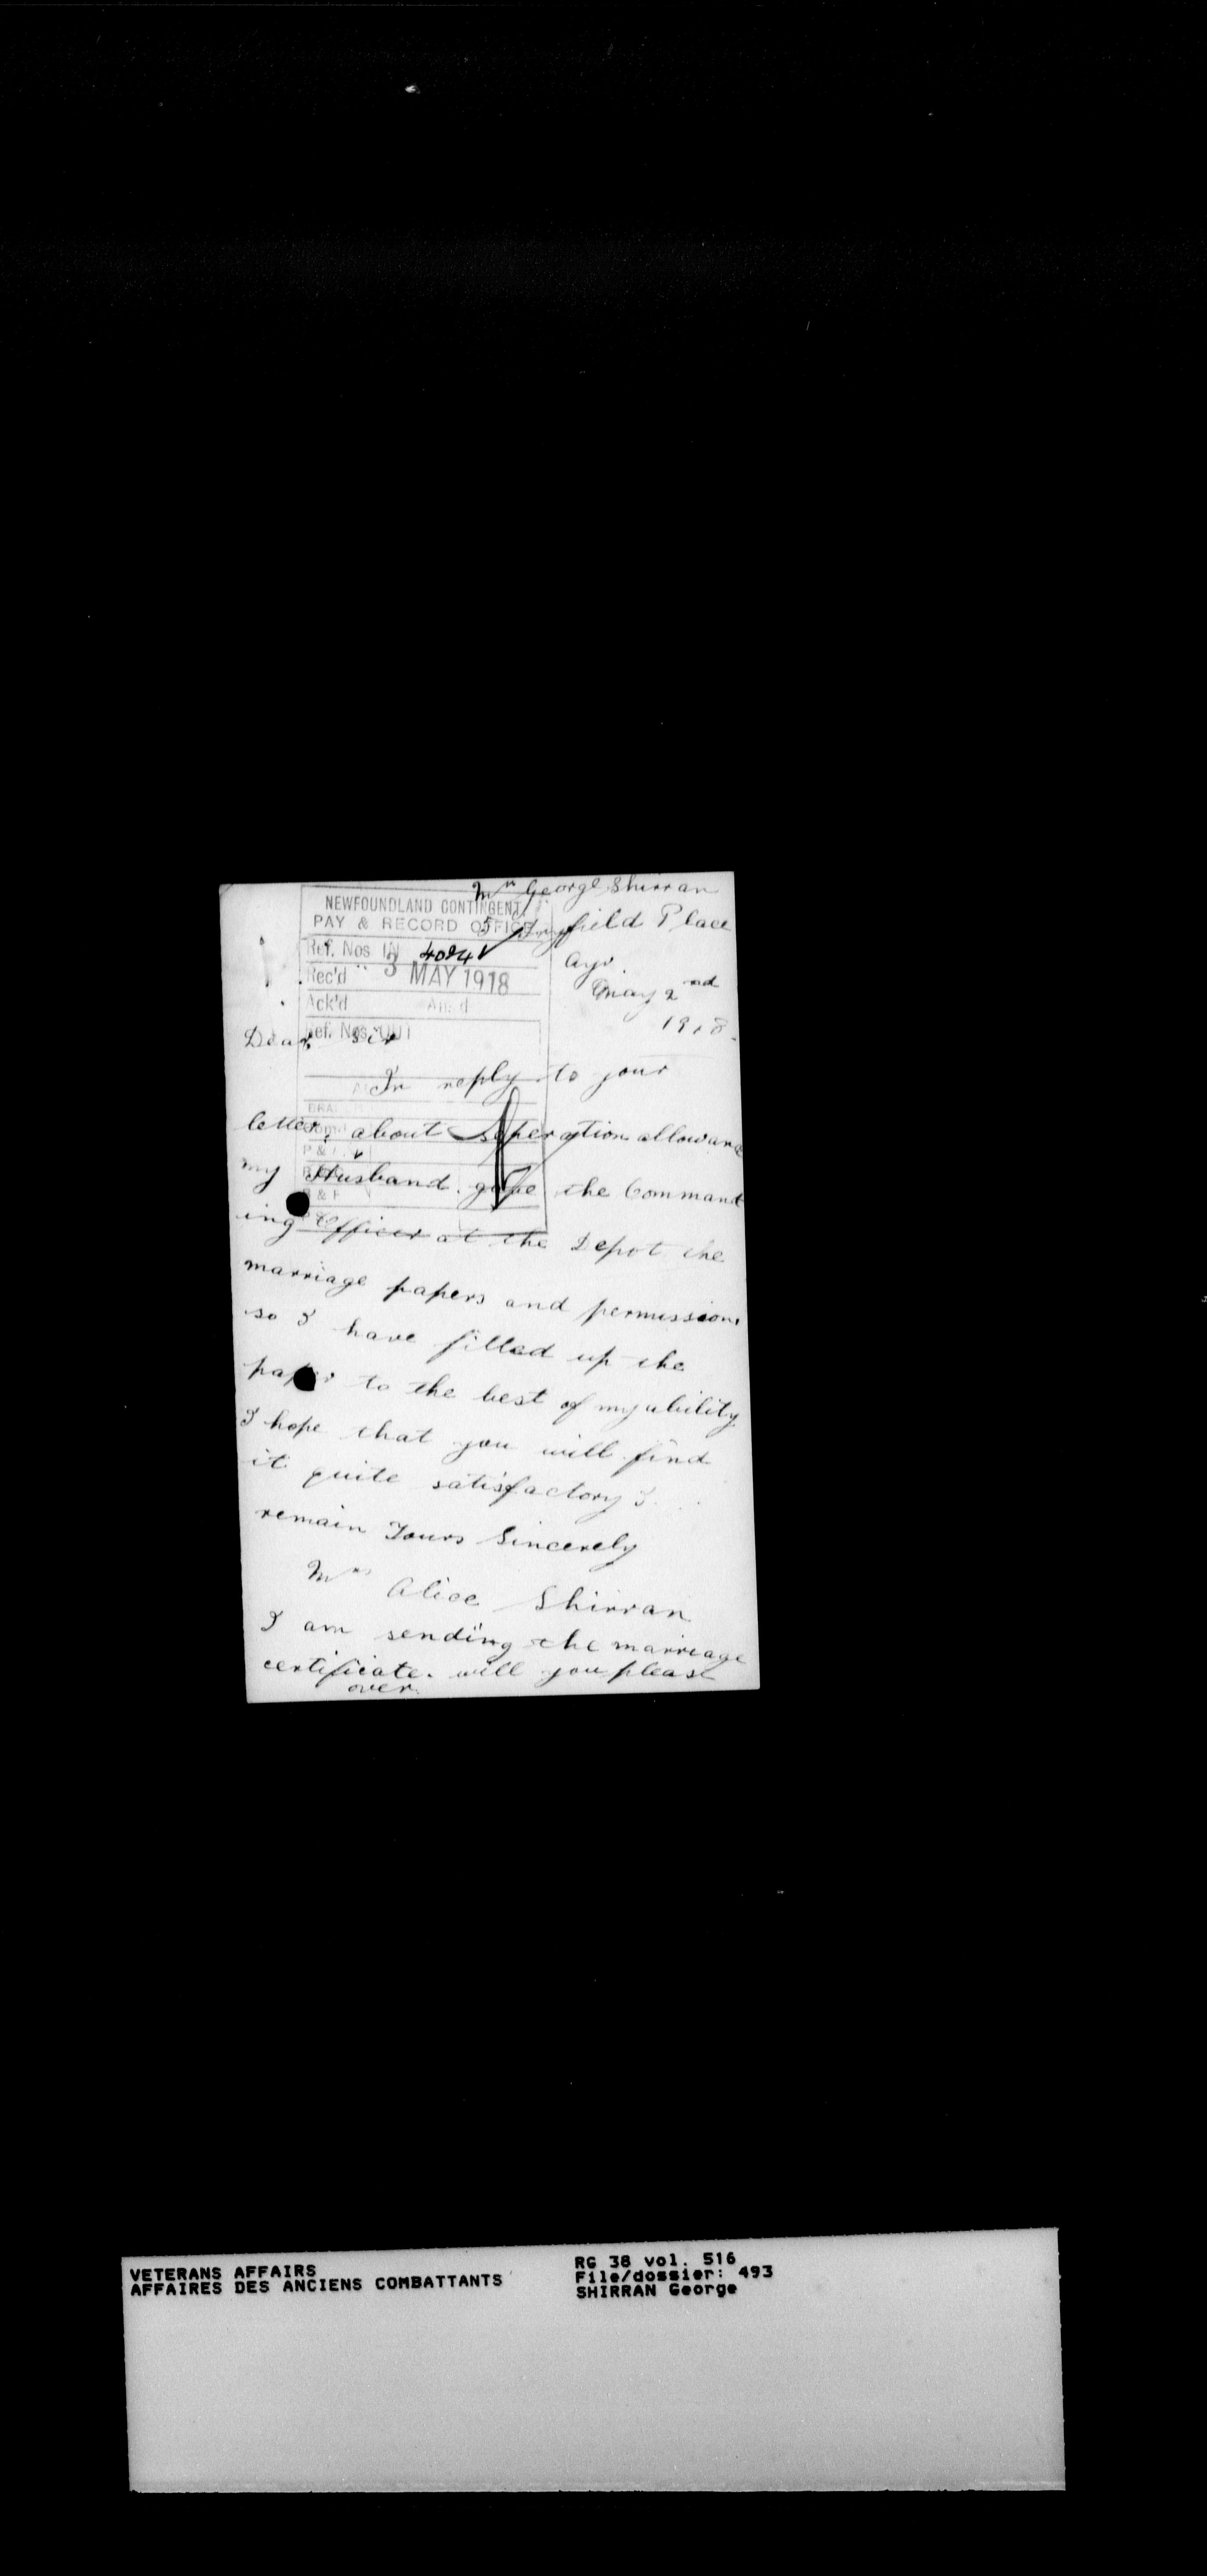 Mrs George Shirran
NEWFOUNDLAND CONTINGENT
PAY & RECORD OFFICE
5 field Place
Ref. Nos IN 4084
Ayr.
Rec'd 3 MAY 1918
May 2nd
Ack'd
1918.
Ref. Nos. OUT
Dear Sir
In reply to your
letter, about seperation allowance
my Husband gave the Command
ing Officer at the Depot the
marriage papers and permission
so I have filled up the
paper to the best of my ability
I hope that you will find
it quite satisfactory I
remain Yours Sincerely
Mrs Alice Shirran
I am sending the marriage
certificate. will you please
over.
VETERANS AFFAIRS
AFFAIRES DES ANCIENS COMBATTANTS
RG 38 vol. 516
File/dossier: 493
SHIRRAN George